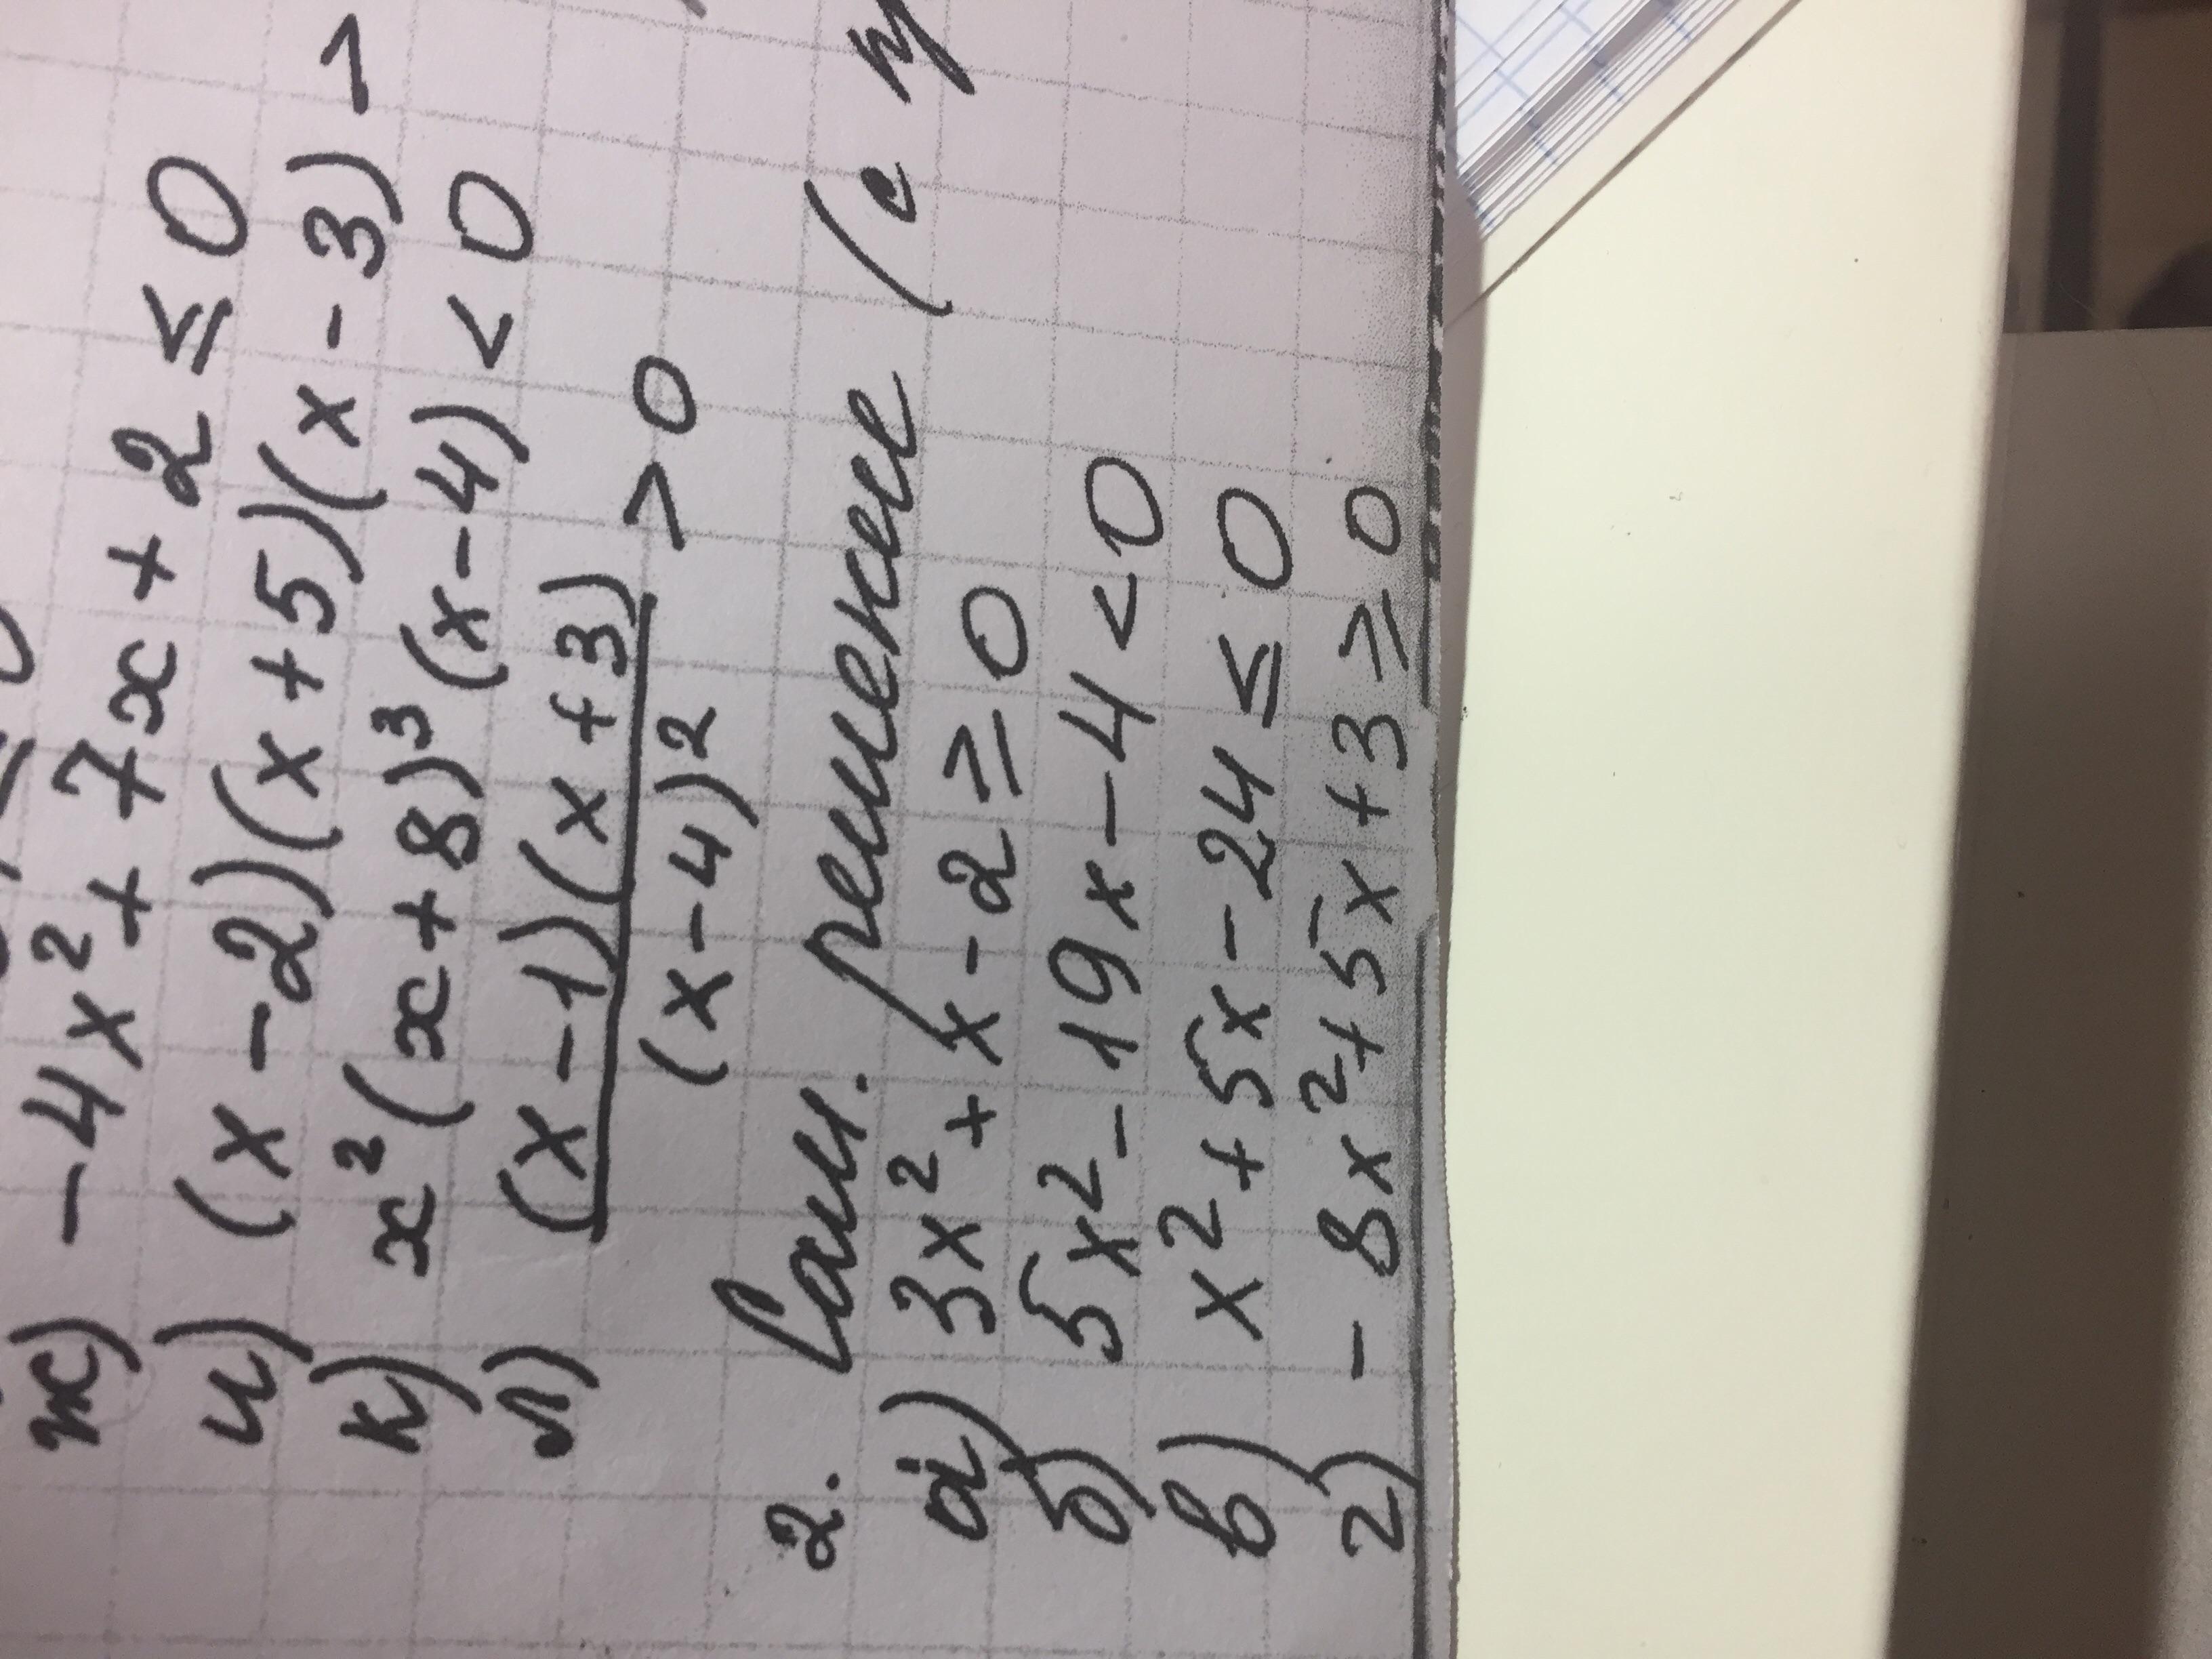 ж) -4x² + 7x + 2 ≤ 0
и) (x - 2)(x + 5)(x - 3) >
к) x²(x + 8)³(x - 4) < 0
л) (x - 1)(x + 3) / (x - 4)² > 0
2. Сам. решение (с
а) 3x² + x - 2 ≥ 0
б) 5x² - 19x - 4 < 0
в) x² + 5x - 24 ≤ 0
г) - 8x² + 5x + 3 ≥ 0